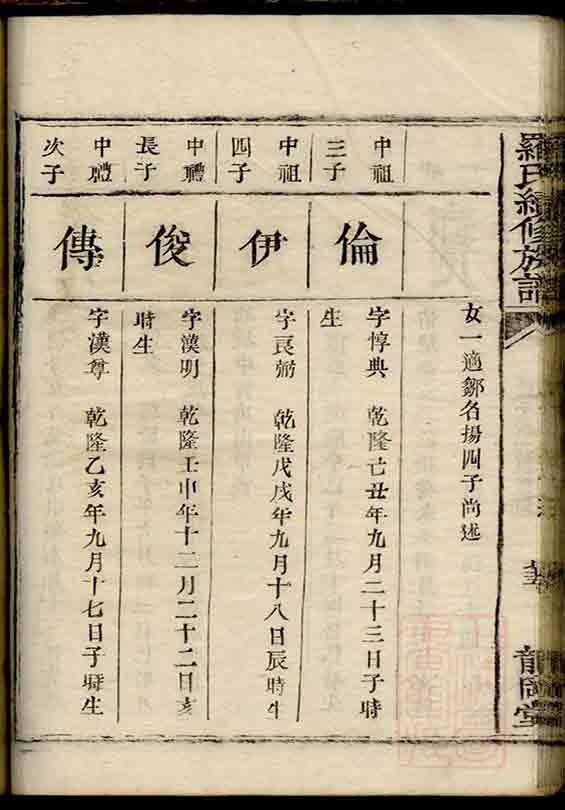 羅氏續修族譜
龍岡堂
女一適鄒名揚四子尚述
中祖
三子
倫
字惇典 乾隆亡丑年九月二十三日子時
生
中祖
四子
伊
字良弼 乾隆戊戌年九月十八日辰時生
中禮
長子
俊
字漢明 乾隆壬申年十二月二十二日亥
時生
中禮
次子
傳
字漢尊 乾隆乙亥年九月十七日子時生